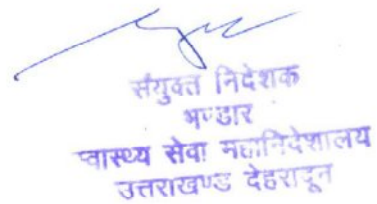 संयुक्त निदेशक
भण्डार
स्वास्थ्य सेवा महानिदेशालय
उत्तराखण्ड देहरादून